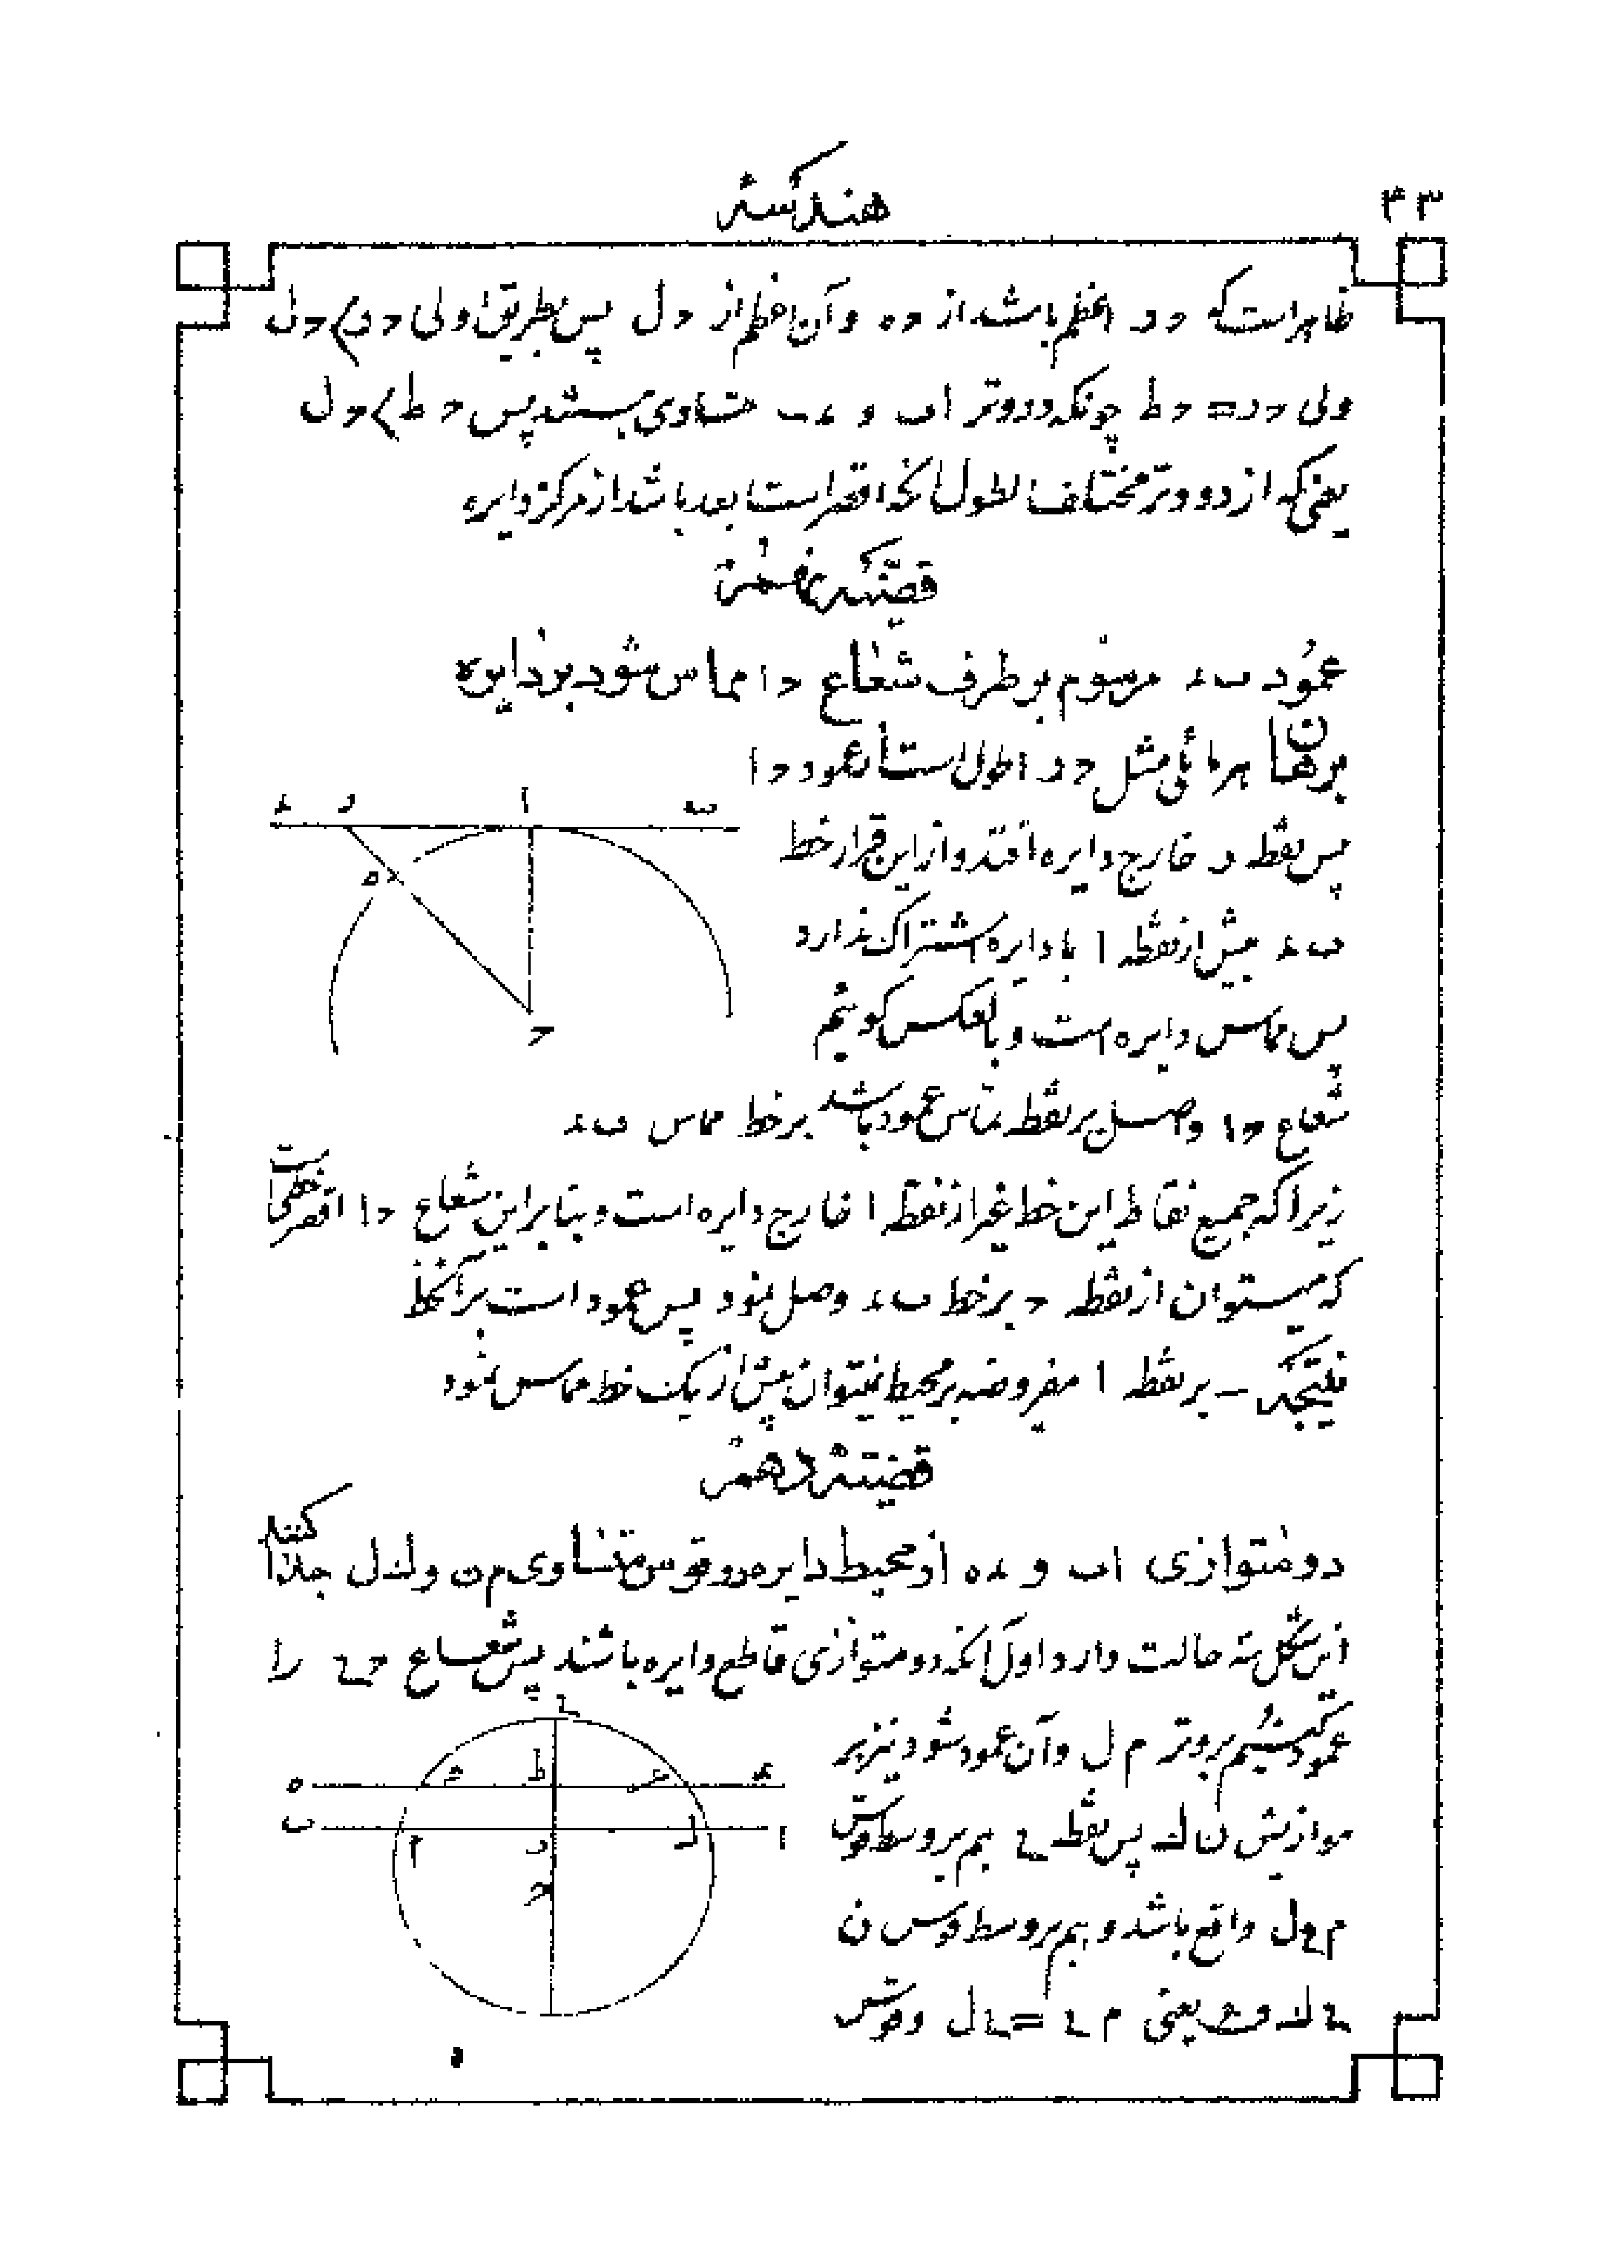 ۴۳
هندسه
ظاهر است که حر اعظم باشد از حه و آن اعظم از حل پس بطریق اولی حر > حل
ولی حر = حط چونکه دو وتر اب و متساوی هستند پس حط > حل
یعنی که از دو وتر مختلف الطول آنکه اقصر است ابعد باشد از مرکز دایره
قضیه نهم
عمود بء مرسوم بر طرف شعاع حا مماس شود بر دایره
برهان هر مائلی مثل حر اطول است از عمود حا
پس نقطه ر خارج دایره افتد و از این قرار خط
بء بیش از نقطه ا با دایره اشتراک ندارد
پس مماس دایره است و بالعکس گوئیم
شعاع حا وصل بر نقطه تماس عمود باشد بر خط مماس بء
زیرا که جمیع نقاط این خط غیر از نقطه ا خارج دایره است و بنابراین شعاع حا اقصر خطی است
که میتوان از نقطه ح بر خط بء وصل نمود پس عمود است بر آنخط
نتیجه – بر نقطه ا مفروضه بر محیط نمیتوان بیش از یک خط مماس نمود
ء ر ا ب
ه
ح
قضیه دهم
دو متوازی اب و ءه از محیط دایره دو قوس متساوی من و ک ل جدا کنند
این شکل سه حالت دارد اول آنکه دو متوازی قاطع دایره باشند پس شعاع حح را
عمود کنیم بر وتر م ل و آن عمود شود نیز بر
موازیش ن ک پس نقطه ح هم بر وسط قوس
م ح ل واقع باشد و هم بر وسط قوس ن
ح ک یعنی م ح = ح ل و قوس
ح
ه ط ء
ب م ر ل ا
ح